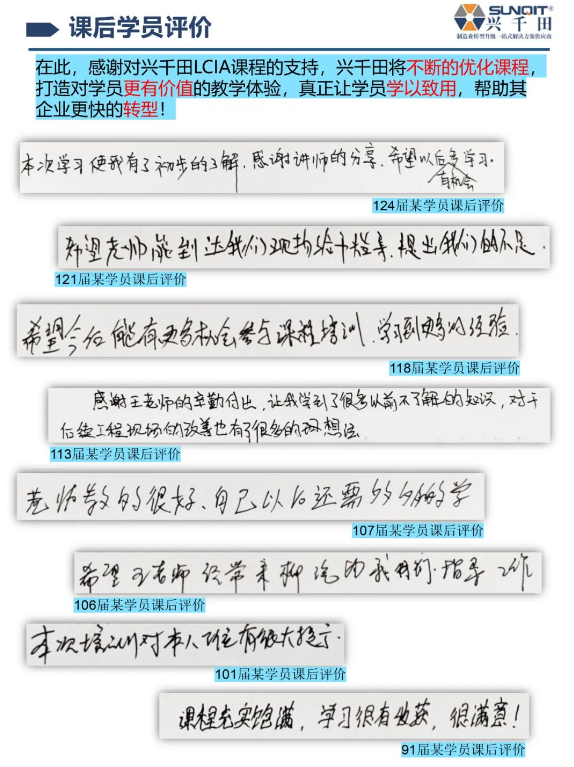 课后学员评价
SUNQIT®
兴千田
制造业转型升级一站式解决方案供应商
在此，感谢对兴千田LCIA课程的支持，兴千田将不断的优化课程，
打造对学员更有价值的教学体验，真正让学员学以致用，帮助其
企业更快的转型！
本次学习使我有了初步的了解，感谢讲师的分享、希望以后有机会多学习.
124届某学员课后评价
希望老师能到达我们现场给予指导、提出我们的不足.
121届某学员课后评价
希望今后能有更多机会参与课程培训、学习到更多的经验.
118届某学员课后评价
感谢王老师的辛勤付出，让我学到了很多以前不了解的知识，对于
后续工程现场的改善也有了很多的 想法.
113届某学员课后评价
老师教的很好、自己以后还需 学
107届某学员课后评价
希望王老师经常来柳汽 我们指导工作
106届某学员课后评价
本次培训对本人 有很大提示.
101届某学员课后评价
课程充实饱满，学习很有收获，很满意！
91届某学员课后评价